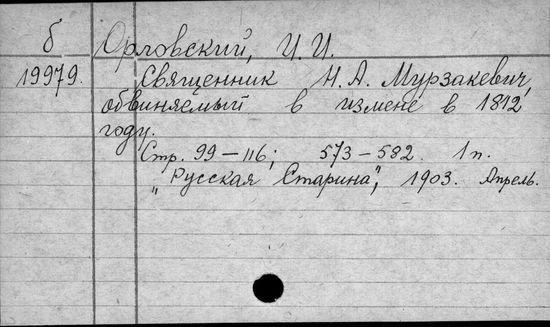 б Орловский, И. И.
19979. Священник Н. А. Мурзакевич,
обвиняемый в измене в 1812
году.
Стр. 99 – 116; 573 – 582. 1 п.
„Русская Старина", 1903. Апрель.